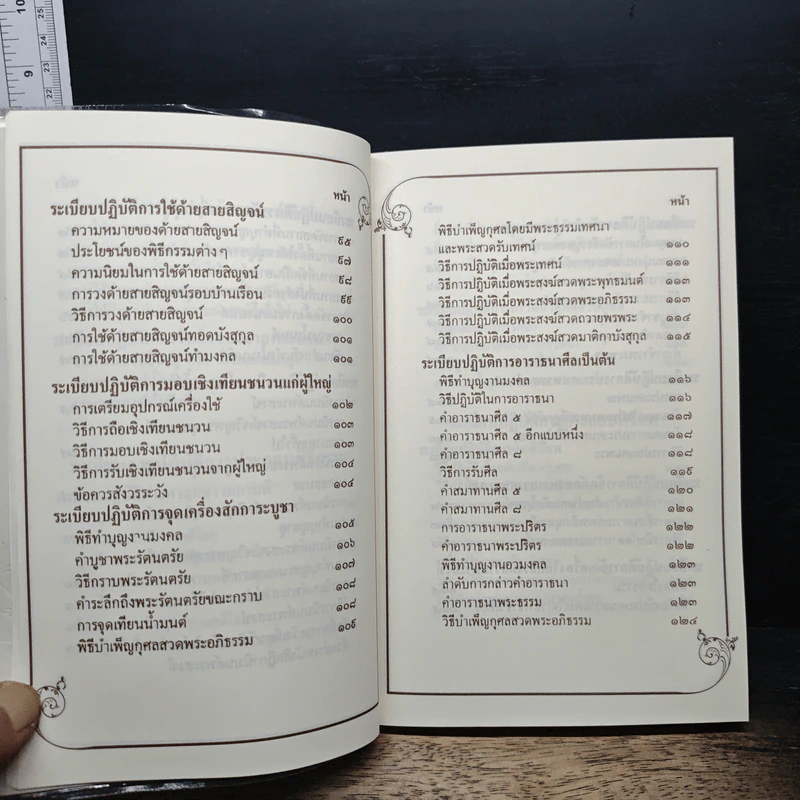 10
9
25
24
23
22
หน้า
ระเบียบปฏิบัติการใช้ด้ายสายสิญจน์
ความหมายของด้ายสายสิญจน์ ๙๕
ประโยชน์ของพิธีกรรมต่าง ๆ ๙๗
ความนิยมในการใช้ด้ายสายสิญจน์ ๙๘
การวงด้ายสายสิญจน์รอบบ้านเรือน ๙๙
วิธีการวงด้ายสายสิญจน์ ๑๐๐
การใช้ด้ายสายสิญจน์ทอดบังสุกุล ๑๐๑
การใช้ด้ายสายสิญจน์ทำมงคล ๑๐๑
ระเบียบปฏิบัติการมอบเชิงเทียนชนวนแก่ผู้ใหญ่
การเตรียมอุปกรณ์เครื่องใช้ ๑๐๒
วิธีการถือเชิงเทียนชนวน ๑๐๓
วิธีการมอบเชิงเทียนชนวน ๑๐๓
วิธีการรับเชิงเทียนชนวนจากผู้ใหญ่ ๑๐๔
ข้อควรสังวรระวัง ๑๐๔
ระเบียบปฏิบัติการจุดเครื่องสักการะบูชา
พิธีทำบุญงานมงคล ๑๐๕
คำบูชาพระรัตนตรัย ๑๐๖
วิธีกราบพระรัตนตรัย ๑๐๗
คำระลึกถึงพระรัตนตรัยขณะกราบ ๑๐๘
การจุดเทียนน้ำมนต์ ๑๐๘
พิธีบำเพ็ญกุศลสวดพระอภิธรรม ๑๐๙
หน้า
พิธีบำเพ็ญกุศลโดยมีพระธรรมเทศนา
และพระสวดรับเทศน์ ๑๑๐
วิธีการปฏิบัติเมื่อพระเทศน์ ๑๑๑
วิธีการปฏิบัติเมื่อพระสงฆ์สวดพระพุทธมนต์ ๑๑๓
วิธีการปฏิบัติเมื่อพระสงฆ์สวดพระอภิธรรม ๑๑๓
วิธีการปฏิบัติเมื่อพระสงฆ์สวดถวายพรพระ ๑๑๔
วิธีการปฏิบัติเมื่อพระสงฆ์สวดมาติกาบังสุกุล ๑๑๕
ระเบียบปฏิบัติการอาราธนาศีลเป็นต้น
พิธีทำบุญงานมงคล ๑๑๖
วิธีปฏิบัติในการอาราธนา ๑๑๖
คำอาราธนาศีล ๕ ๑๑๗
คำอาราธนาศีล ๕ อีกแบบหนึ่ง ๑๑๘
คำอาราธนาศีล ๘ ๑๑๘
วิธีการรับศีล ๑๑๙
คำสมาทานศีล ๕ ๑๒๐
คำสมาทานศีล ๘ ๑๒๑
การอาราธนาพระปริตร ๑๒๒
คำอาราธนาพระปริตร ๑๒๒
พิธีทำบุญงานอวมงคล ๑๒๓
ลำดับการกล่าวคำอาราธนา ๑๒๓
คำอาราธนาพระธรรม ๑๒๓
วิธีบำเพ็ญกุศลสวดพระอภิธรรม ๑๒๔